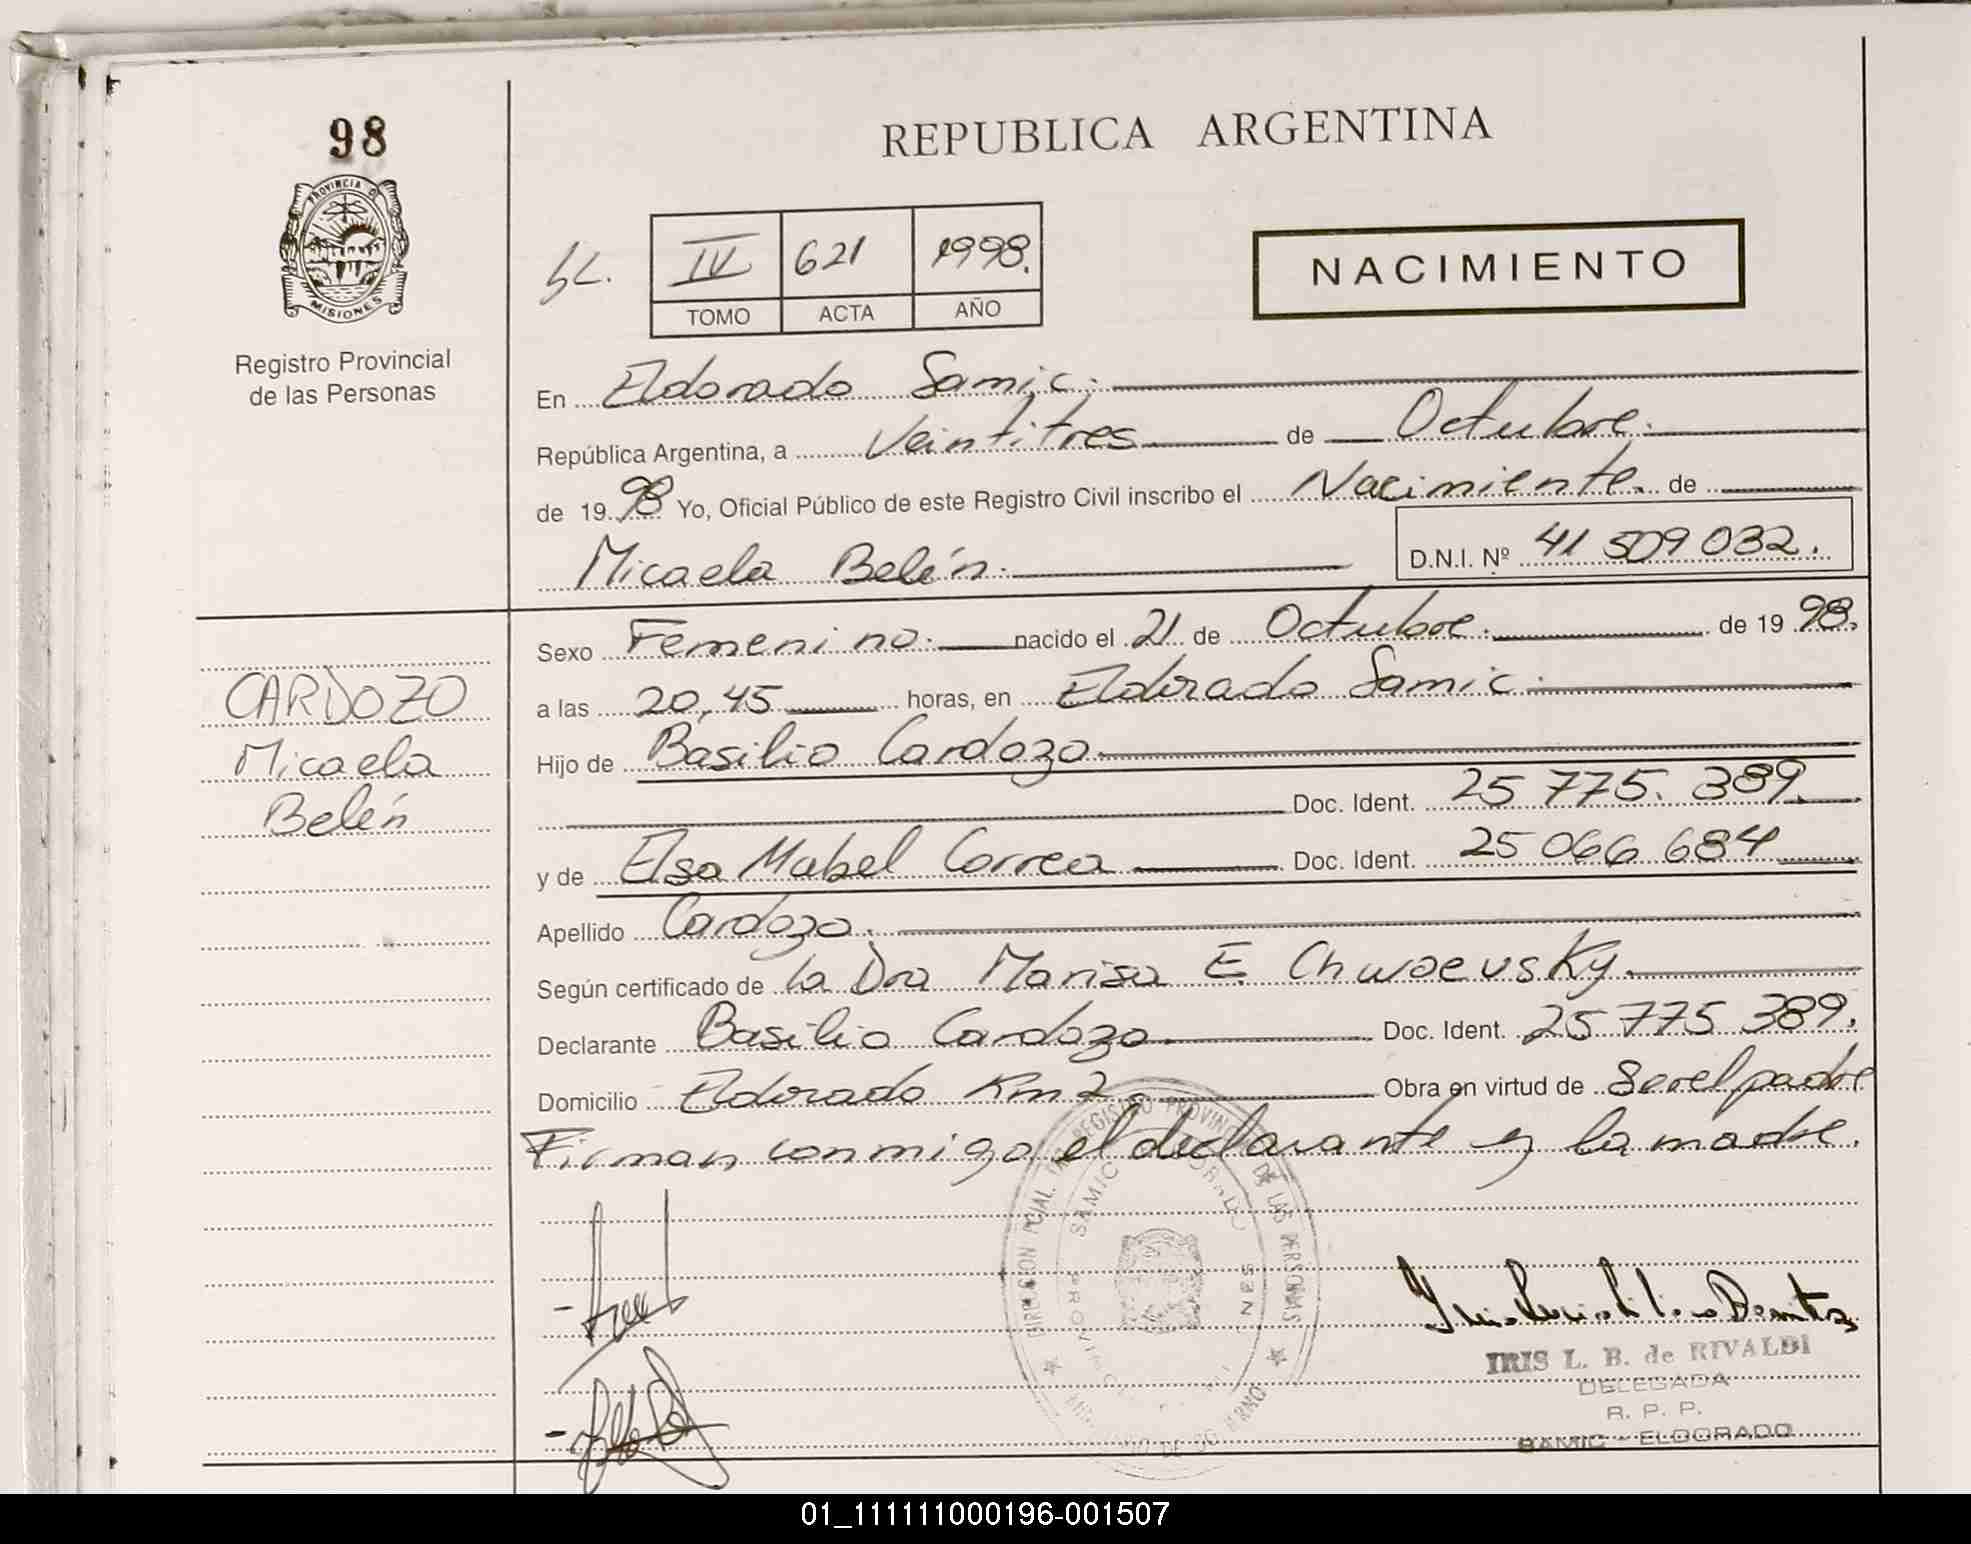 98
PROVINCIA D
MISIONES
Registro Provincial
de las Personas
REPUBLICA ARGENTINA
IV 621 1998.
TOMO ACTA AÑO
NACIMIENTO
En Eldorado Samic.
República Argentina, a Veintitres de Octubre.
de 1998 Yo, Oficial Público de este Registro Civil inscribo el Nacimiento. de
Micaela Belén. D.N.I. Nº 41 509 032.
CARDOZO
Micaela
Belén
Sexo Femenino. nacido el 21 de Octubre. de 19 98.
a las 20,45 horas, en Eldorado Samic.
Hijo de Basilio Cardozo
Doc. Ident. 25 775. 389.
y de Elsa Mabel Correa Doc. Ident. 25 066 684
Apellido Cardozo.
Según certificado de la Dra Marisa E.
Declarante Basilio Cardozo. Doc. Ident. 25 775 389.
Domicilio Eldorado Km 2. Obra en virtud de Ser el padre
Firman conmigo el declarante y la madre.
IRIS L. B. de RIVALDI
DELEGADA
R. P. P.
SAMIC - ELDORADO
01_111111000196-001507